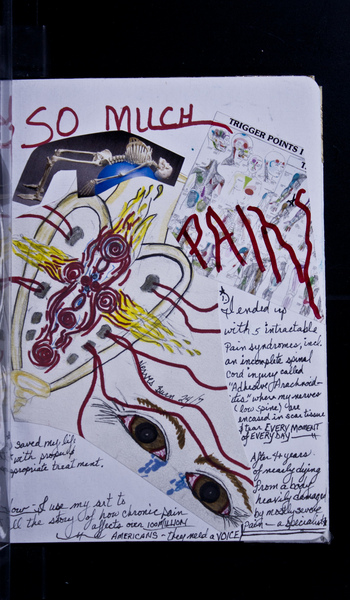 SO MUCH
TRIGGER POINTS I
T
PAIN
I ended up
with 5 intractable
Pain syndromes, incl.
an incomplete spinal
cord injury called
"Adhesive Arachnoid-
itis" where my nerves
(low spine) are
encased in scar tissue
& tear EVERY MOMENT
of EVERY DAY
saved my life
with proper
appropriate treatment.
After 4+ years
of nearly dying
from a body
heavily damaged
by mostly severe
Pain - a specialist
Now I use my art to
tell the story of how chronic pain
affects over 100 MILLION
AMERICANS - they need a VOICE!